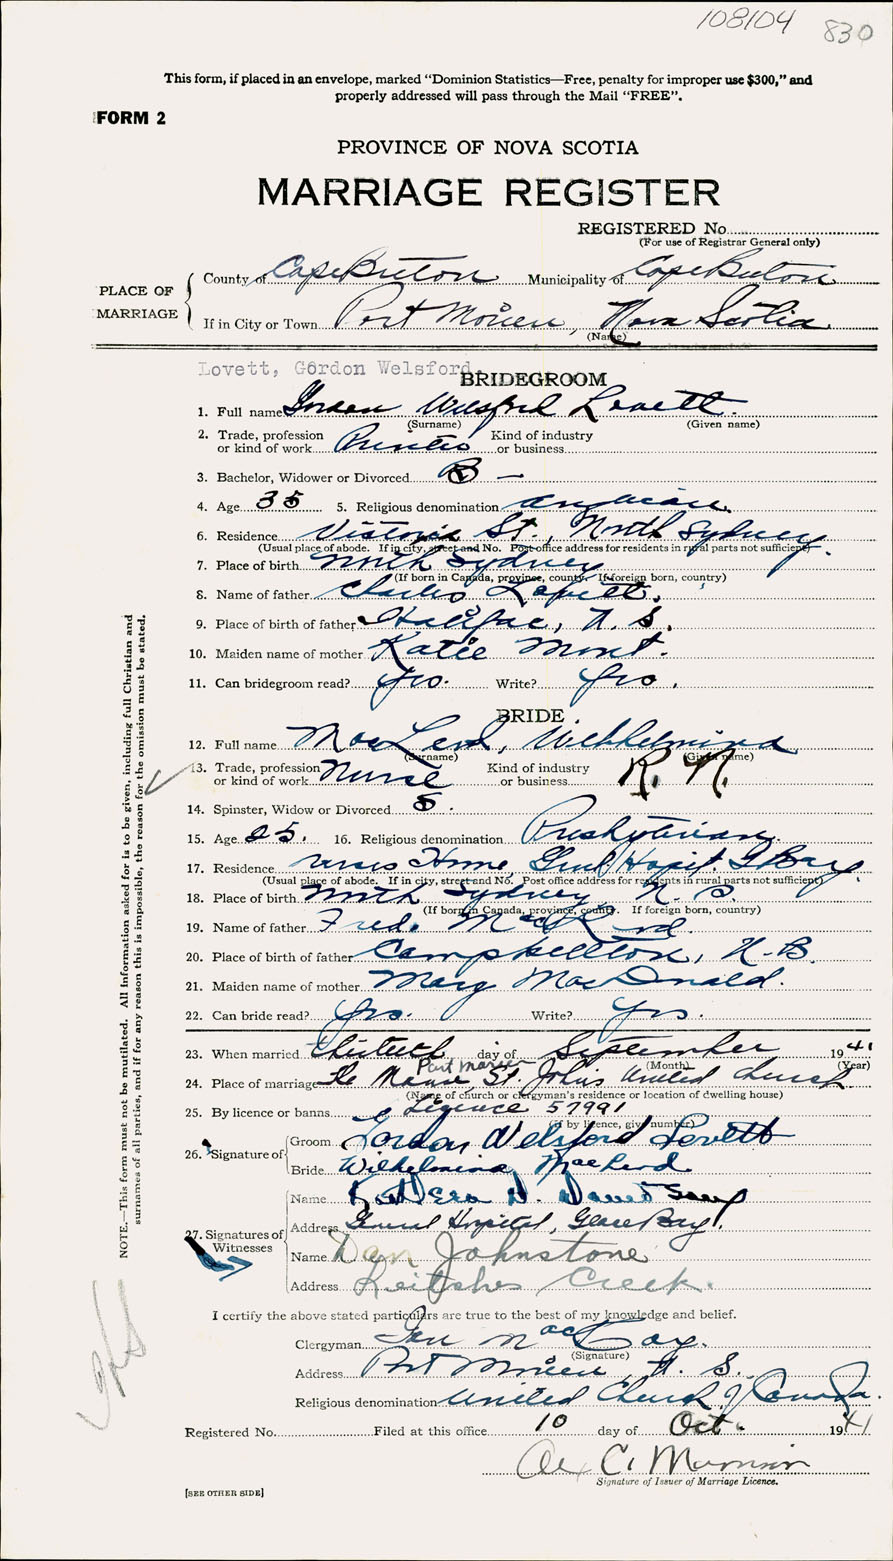 108104 830
This form, if placed in an envelope, marked "Dominion Statistics—Free, penalty for improper use $300," and
properly addressed will pass through the Mail "FREE".
FORM 2
PROVINCE OF NOVA SCOTIA
MARRIAGE REGISTER
REGISTERED No.
(For use of Registrar General only)
PLACE OF MARRIAGE
County of Cape Breton Municipality of Cape Breton
If in City or Town Port Morien, Nova Scotia
(Name)
Lovett, Gordon Welsford
BRIDEGROOM
1. Full name Gordon Welsford Lovett.
(Surname) (Given name)
2. Trade, profession or kind of work Kind of industry or business
3. Bachelor, Widower or Divorced B —
4. Age 35 5. Religious denomination Anglican.
6. Residence Victoria St., North Sydney.
(Usual place of abode. If in city, street and No. Post office address for residents in rural parts not sufficient)
7. Place of birth North Sydney
(If born in Canada, province, county. If foreign born, country)
8. Name of father Charles Lovett.
9. Place of birth of father Halifax, N. S.
10. Maiden name of mother Katie
11. Can bridegroom read? Yes. Write? Yes.
BRIDE
12. Full name MacLeod, Wilhelmina
(Surname) (Given name)
13. Trade, profession or kind of work Nurse Kind of industry or business R. N.
14. Spinster, Widow or Divorced S.
15. Age 25. 16. Religious denomination Presbyterian.
17. Residence Home, Genl Hospit. G Bay.
(Usual place of abode. If in city, street and No. Post office address for residents in rural parts not sufficient)
18. Place of birth North Sydney N. S.
(If born in Canada, province, county. If foreign born, country)
19. Name of father Fred. MacLeod.
20. Place of birth of father Campbellton, N.B.
21. Maiden name of mother Mary MacDonald.
22. Can bride read? Yes. Write? Yes.
23. When married Thirtieth day of September 1941
(Month) (Year)
Port Morien
24. Place of marriage The Manse, St. Johns United Church
(Name of church or clergyman's residence or location of dwelling house)
25. By licence or banns Licence 57991
(If by licence, give number)
26. Signature of
Groom Gordon Welsford Lovett
Bride Wilhelmina MacLeod
27. Signatures of Witnesses
Name
Address General Hospital, Glace Bay.
Name Dan Johnstone
Address Leitches Creek.
I certify the above stated particulars are true to the best of my knowledge and belief.
Clergyman
(Signature)
Address Port Morien, N. S.
Religious denomination United Church of Canada.
Registered No. Filed at this office 10 day of Oct. 1941
Signature of Issuer of Marriage Licence.
[SEE OTHER SIDE]
NOTE.—This form must not be mutilated. All information asked for is to be given, including full Christian and
surnames of all parties, and if for any reason this is impossible, the reason for the omission must be stated.